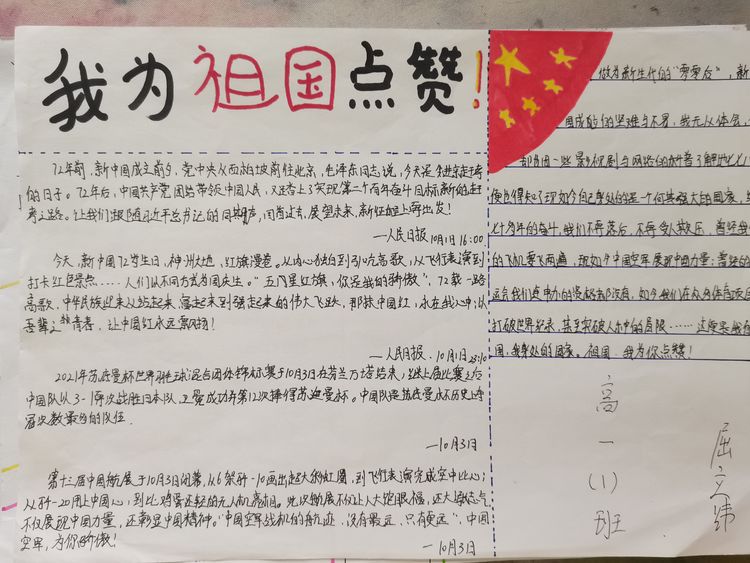 我为祖国点赞!
72年前,新中国成立前夕,党中央从西柏坡前往北京,毛泽东同志说,今天是进京赶考
的日子。72年后,中国共产党团结带领中国人民,又踏上了实现第二个百年奋斗目标新的赶
考之路。让我们跟随习近平总书记的同期声,回首过去,展望未来,新征程上再出发!
—人民日报 10月1日 16:00
今天,新中国72岁生日,神州大地,红旗漫卷。从内心独白到引吭高歌,从飞行表演到
打卡红色景点……人们以不同方式为国庆生。“五星红旗,你是我的骄傲”,72载一路
高歌,中华民族迎来从站起来、富起来到强起来的伟大飞跃,那抹中国红,永在我心中;以
吾辈之青春,让中国红永远飘扬!
—人民日报、10月1日 23:10
2021年苏迪曼杯世界羽毛球混合团体锦标赛于10月3日在芬兰万塔结束,
中国队以3-1再次战胜日本队,卫冕成功并第12次捧得苏迪曼杯。中国队是苏迪曼杯历史上夺
冠次数最多的队伍。
—10月3日
第十三届中国航展于10月3日闭幕,从6架歼-10画出超大的彩虹圈,到飞行表演完成空中比心;
从歼-20用上中国心,到比鸡蛋还轻的无人机亮相。此次航展不仅让人大饱眼福,还大涨志气,
不仅展现中国力量,还彰显中国精神。“中国空军战机的航迹,没有最远,只有更远”,中国
空军,为你骄傲!
—10月3日
做为新生代的“零零后”,新
国成的坚难与不易,我无从体会,
却用因一些影视剧与网络的科普了解
使我得知了现如今自己身处的是一个何其强大的国家,
七十多年的奋斗,我们不再落后,不再受人欺压,曾经我
的飞机要飞两遍,现如今中国空军展现中国力量;曾经的
运会我们连申办的资格都没有,如今我们在众多体育项目
打破世界纪录,甚至突破人类的局限……这便是我的
国,我身处的国家。祖国,我为你点赞!
高
一
(1)
班
屈
文
纬